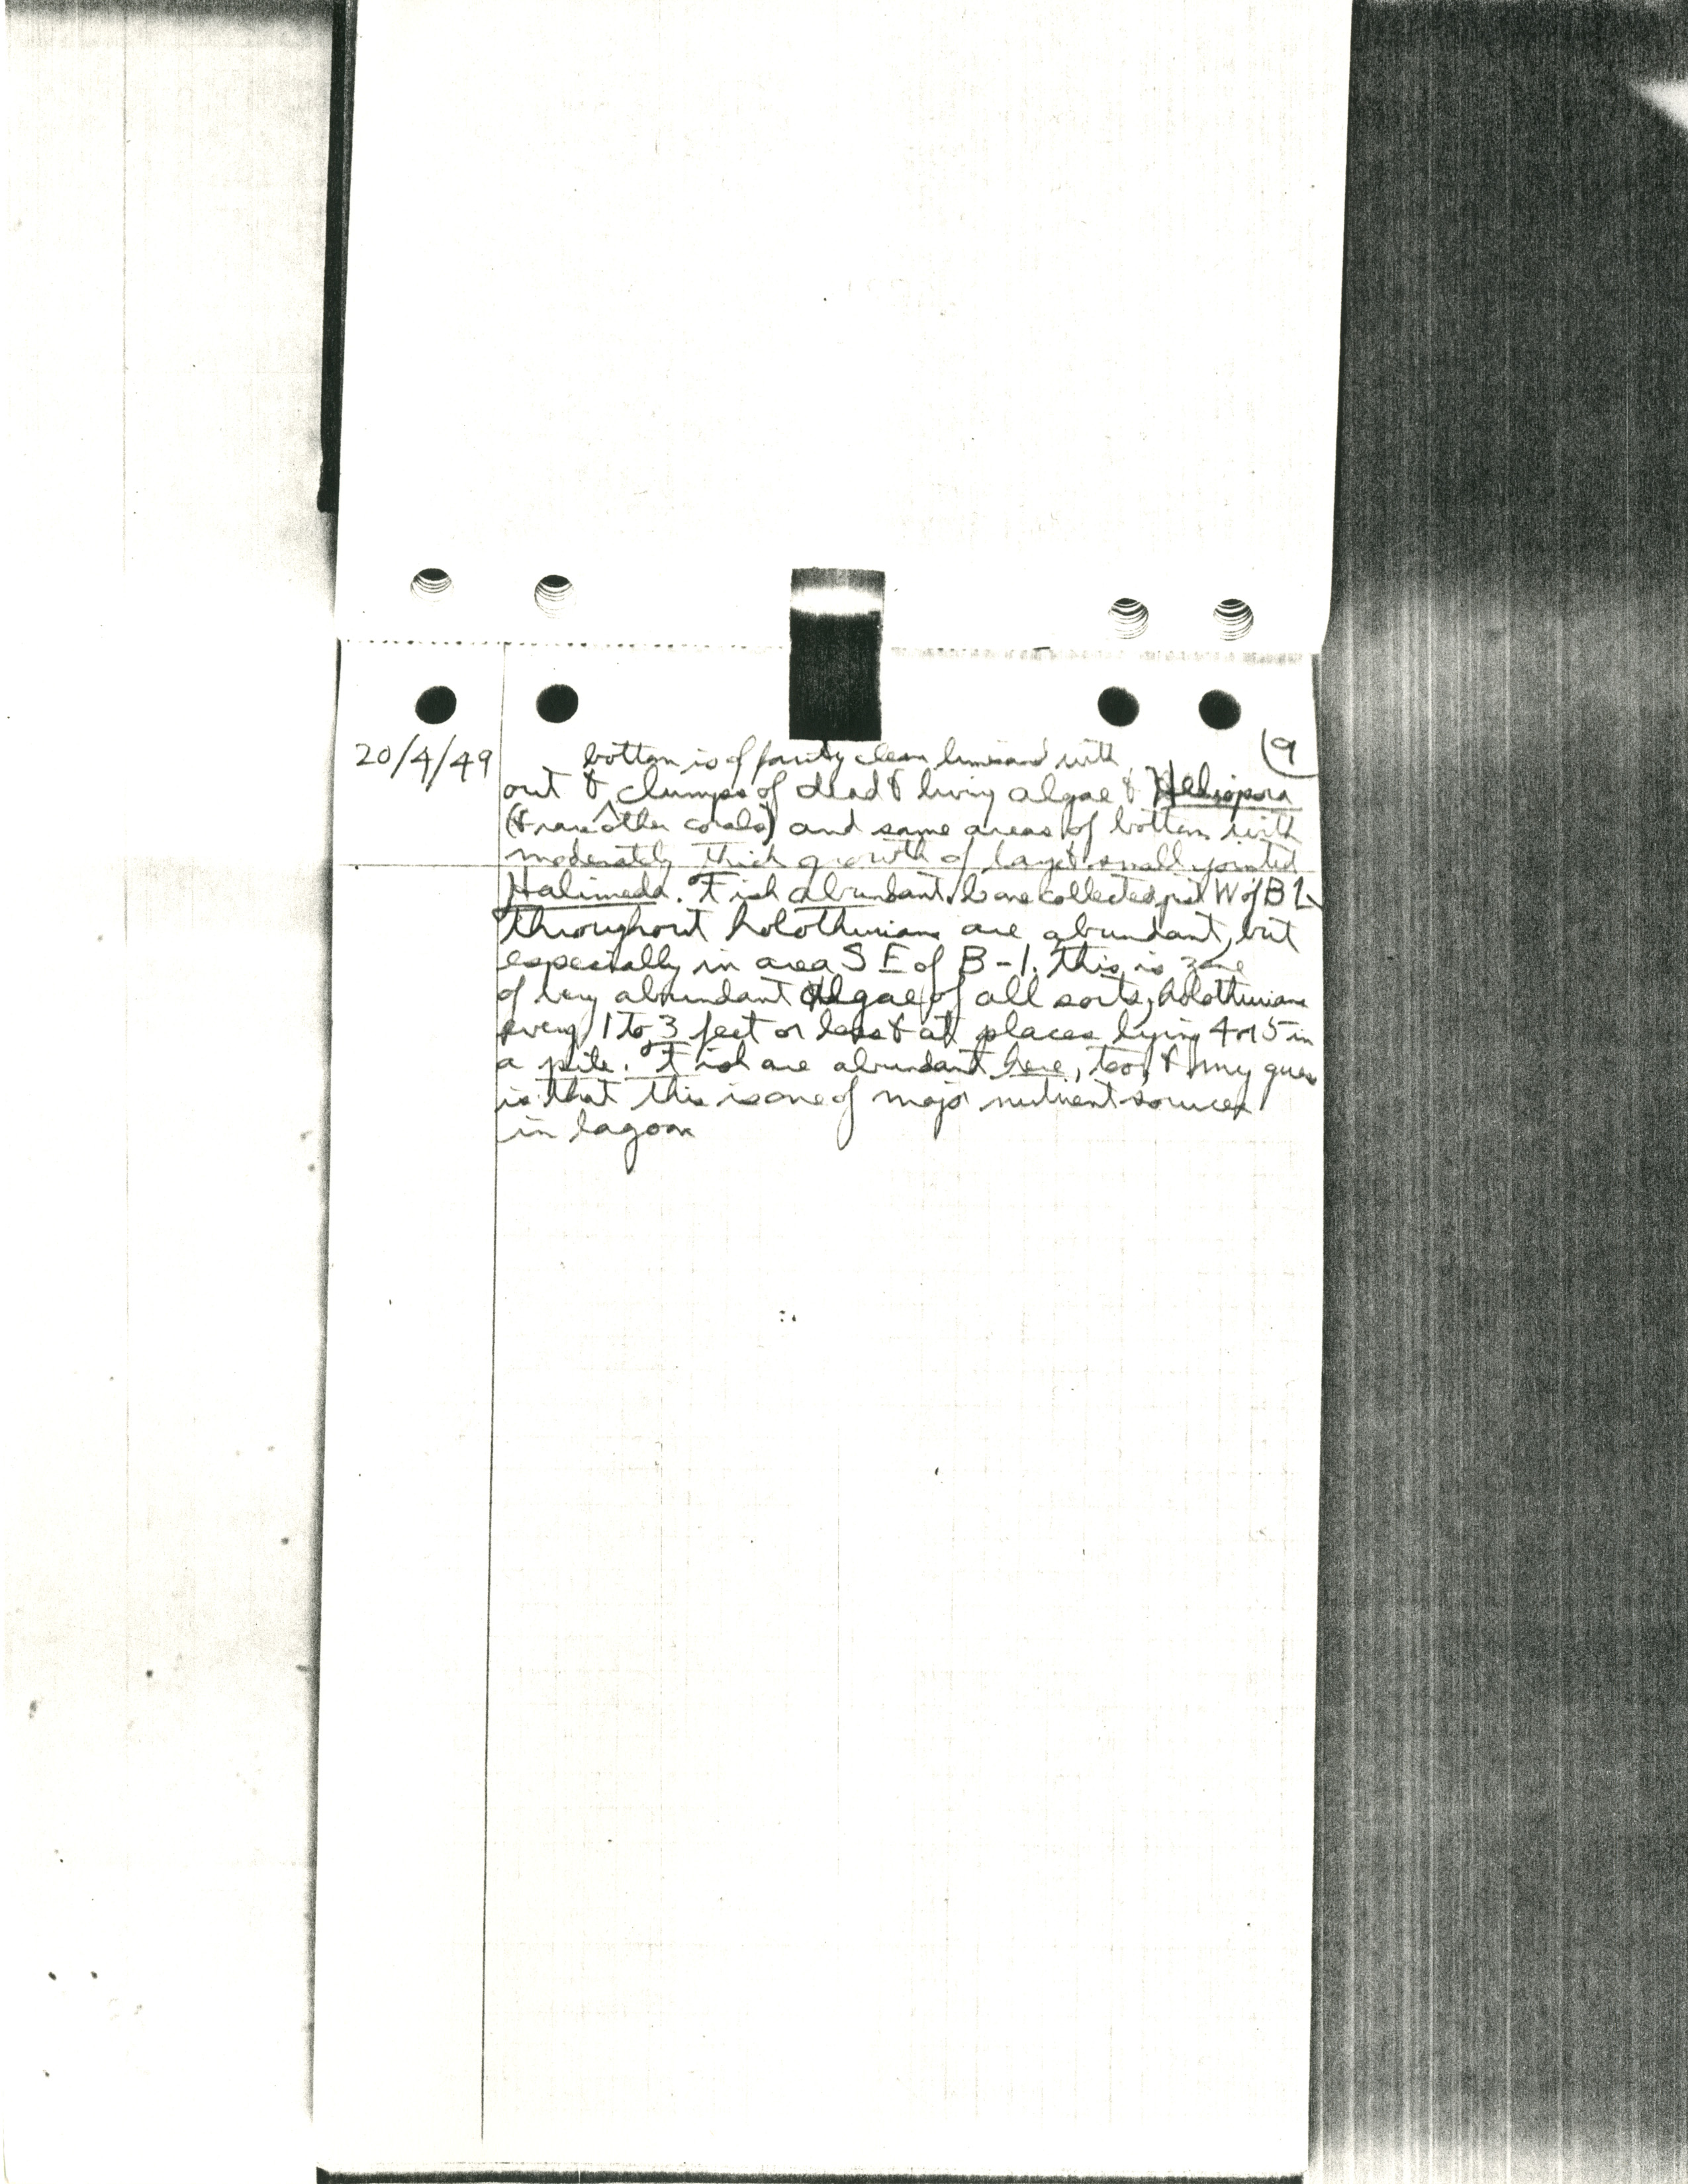 20/4/49
9
bottom is of fairly clean limesand with
out & clumps of dead & living algae & Heliopora
(& rare other corals) and some areas of bottom with
moderately thick growth of large & small jointed
Halimeda. Fish abundant. collected just W of B1
throughout holothurians are abundant, but
especially in area SE of B-1. This is zone
of very abundant algae of all sorts, holothurians
every 1 to 3 feet or less & at places lying 4 or 5 in
a pile. Fish are abundant here, too, & my guess
is that this is one of major nutrient sources
in lagoon